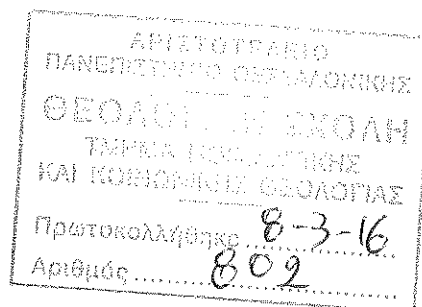 ΑΡΙΣΤΟΤΕΛΕΙΟ
ΠΑΝΕΠΙΣΤΗΜΙΟ ΘΕΣΣΑΛΟΝΙΚΗΣ
ΘΕΟΛΟΓΙΚΗ ΣΧΟΛΗ
ΤΜΗΜΑ ΠΟΙΜΑΝΤΙΚΗΣ
ΚΑΙ ΚΟΙΝΩΝΙΚΗΣ ΘΕΟΛΟΓΙΑΣ
Πρωτοκολλήθηκε 8-3-16
Αριθμός 802